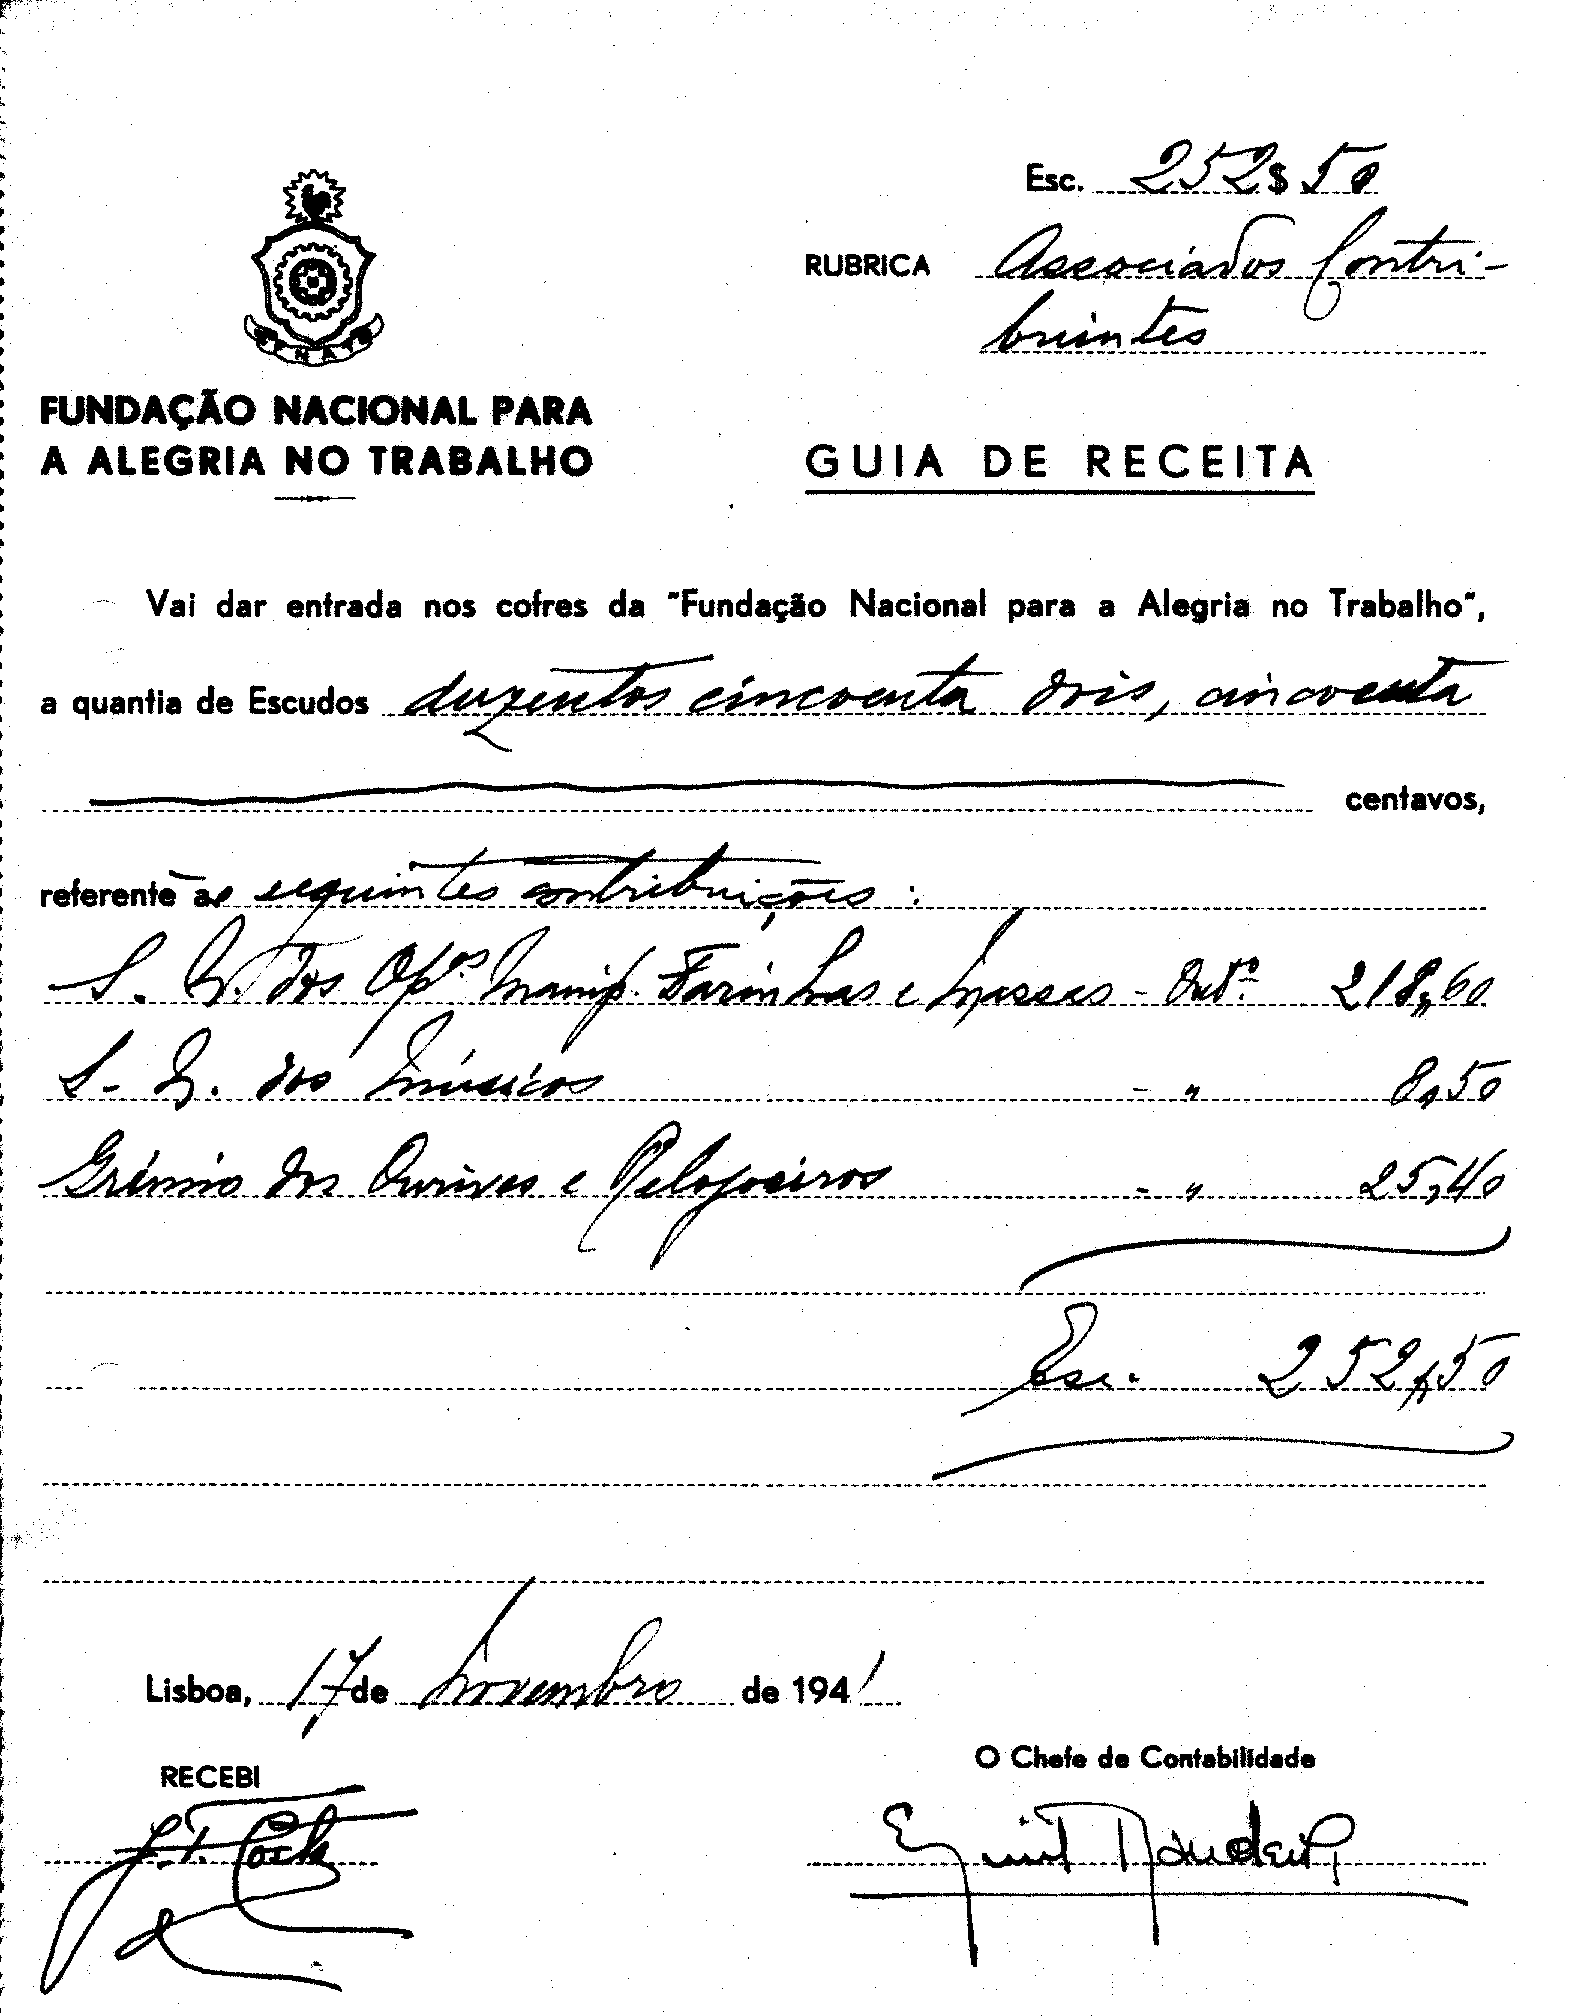 Esc. 252$50
RUBRICA Associados Contri-
buintes
FENAT
FUNDAÇÃO NACIONAL PARA
A ALEGRIA NO TRABALHO
GUIA DE RECEITA
Vai dar entrada nos cofres da "Fundação Nacional para a Alegria no Trabalho",
a quantia de Escudos duzentos cincoenta dois, cincoenta
centavos,
referente às seguintes contribuições:
S. N. dos Opºs Manip. Farinhas e Massas - Outº. 218,60
S. N. dos Músicos - " 8,50
Grémio dos Ourives e Relojoeiros - " 25,40
Esc. 252$50
Lisboa, 17 de Novembro de 1941
RECEBI
O Chefe de Contabilidade